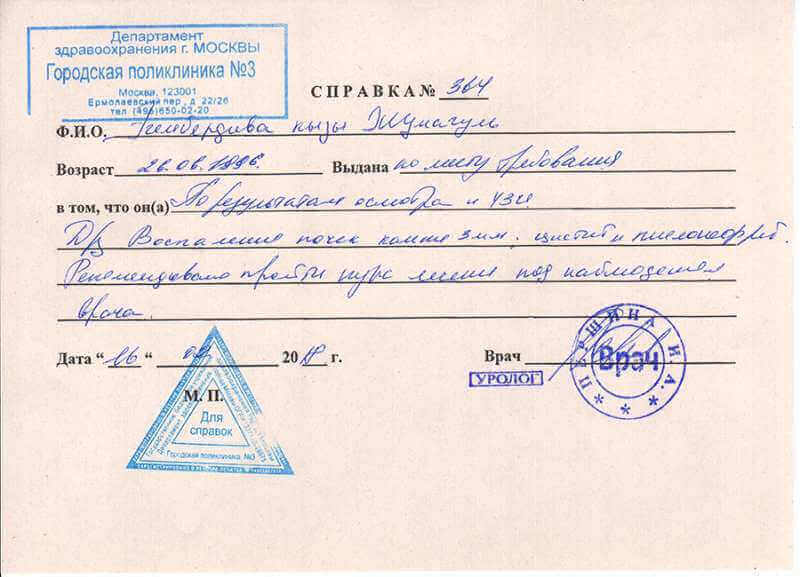 Департамент
здравоохранения г. МОСКВЫ
Городская поликлиника №3
Москва, 123001
Ермолаевский пер., д. 22/26
тел (495)650-02-20
СПРАВКА № 364
Ф.И.О. кызы Жумагуль
Возраст 26.06.1996. Выдана по месту требования
в том, что он(а) По результатам осмотра и УЗИ
Д/з Воспаление почек камни 3мм. цистит и пиелонефрит.
Рекомендовано пройти курс лечения под наблюдением
врача.
Дата “ 16 “ 20 г.
Врач
УРОЛОГ
ПЕРШИНА И.А.
Врач
М. П.
Для
справок
Городская поликлиника №3